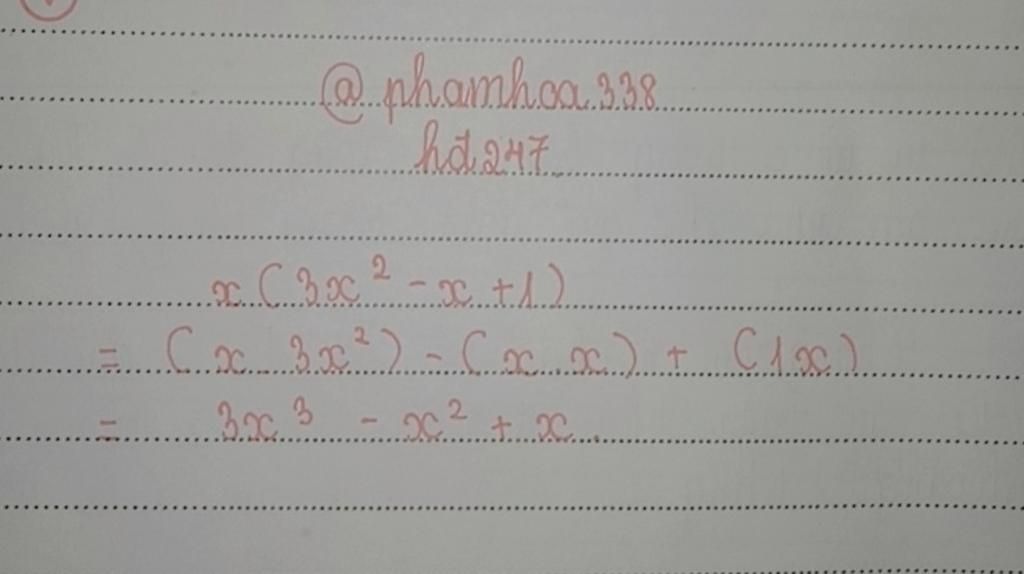 @ phamhoa338
hd247
x(3x² - x + 1)
= (x 3x²) - (x x) + (1x)
= 3x³ - x² + x